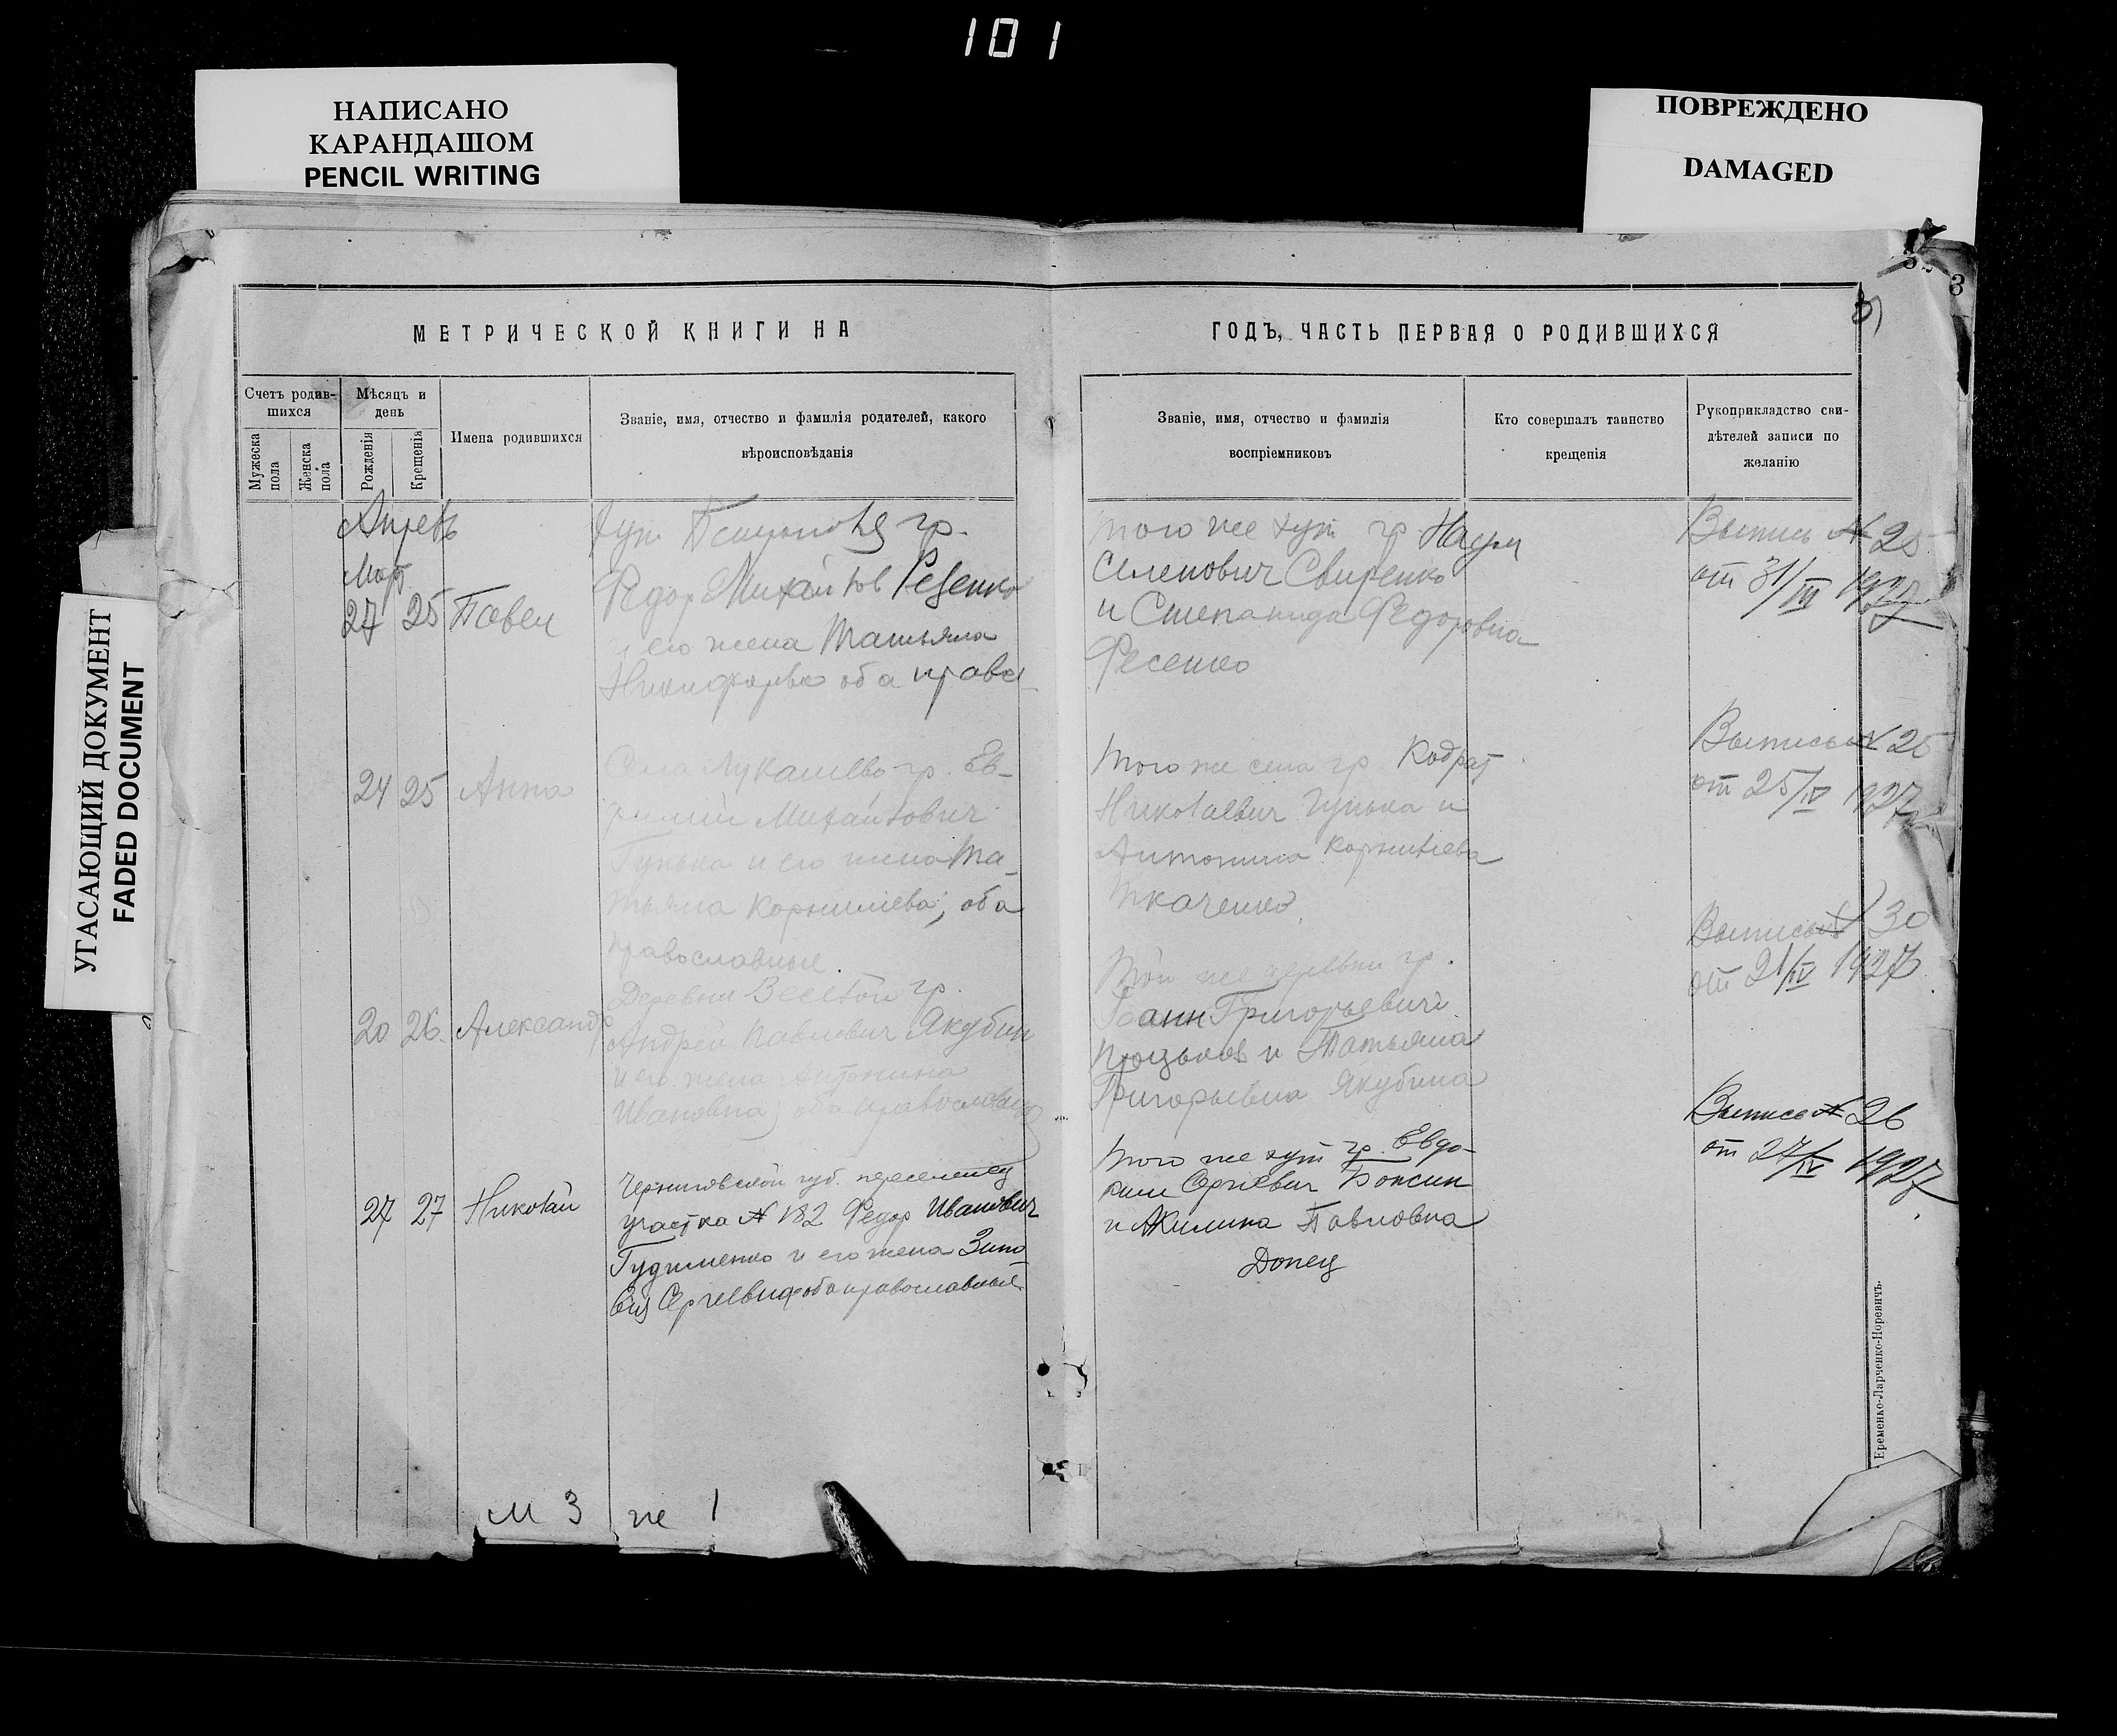 101
НАПИСАНО
КАРАНДАШОМ
PENCIL WRITING
ПОВРЕЖДЕНО
DAMAGED
УГАСАЮЩИЙ ДОКУМЕНТ
FADED DOCUMENT
3
МЕТРИЧЕСКОЙ КНИГИ НА
ГОДЪ, ЧАСТЬ ПЕРВАЯ О РОДИВШИХСЯ
Счетъ родив-
шихся
Мужеска
пола
Женска
пола
Мѣсяцъ и
день
Рожденія
Крещенія
Имена родившихся
Званіе, имя, отчество и фамилія родителей, какого
вѣроисповѣданія
Званіе, имя, отчество и фамилія
воспріемниковъ
Кто совершалъ таинство
крещенія
Рукоприкладство сви-
дѣтелей записи по
желанію
Март
27 25 Павел
хут. гр.
Федор Михайлов Фесенко
и его жена Татьяна
оба правосл
того же хут гр Наум
Свиренко
и Степанида Федоровна
Фесенко
Выпись №
от 31/III 1927
24 25 Анна
Села гр. Ев-
фимий Михайлович
Гунька и его жена Та-
тьяна Корнилиева, оба
православные.
того же села гр. Кодрат
Николаевич Гунька и
Антонина Корнилиева
Ткаченко.
Выпись №
от 25/IV 1927
20 26 Александр
Деревни Веселой гр.
Андрей Павлович Якубин
и его жена Антонина
Ивановна, оба православные
Той же деревни гр.
Іоанн Григорьевич
и Татьяна
Григорьевна Якубина
Выпись № 30
от 21/IV 1927
27 27 Николай
Черниговской губ. переселенец
участка № 182 Федор Иванович
и его жена Зино-
вия Сергеевна оба православные
того же хут гр. Евдо-
ким Сергеевич
и Акилина Павловна
Донец
Выпись № 26
от 27/IV 1927
м 3 ж 1
Еременко-Ларченко-Норевичъ.